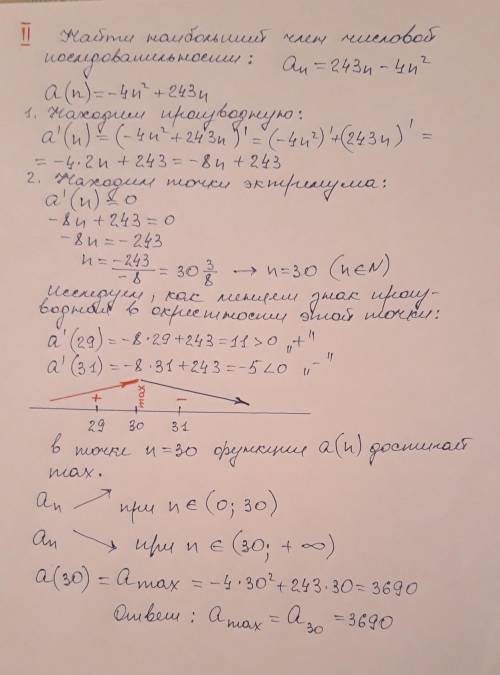 II Найти наибольший член числовой
последовательности: aₙ = 243n - 4n²
a(n) = -4n² + 243n
1. Находим производную:
a'(n) = (-4n² + 243n)' = (-4n²)' + (243n)' =
= -4·2n + 243 = -8n + 243
2. Находим точки эктремума:
a'(n) = 0
-8n + 243 = 0
-8n = -243
n = -243/-8 = 30 3/8 → n = 30 (n∈N)
Исследуем, как меняет знак произ-
водная в окрестности этой точки:
a'(29) = -8·29 + 243 = 11 > 0 „+"
a'(31) = -8·31 + 243 = -5 < 0 „-"
+ max -
29 30 31
в точке n = 30 функция a(n) достигает
max.
aₙ ↗ при n ∈ (0; 30)
aₙ ↘ при n ∈ (30; +∞)
a(30) = a max = -4·30² + 243·30 = 3690
Ответ: a max = a₃₀ = 3690